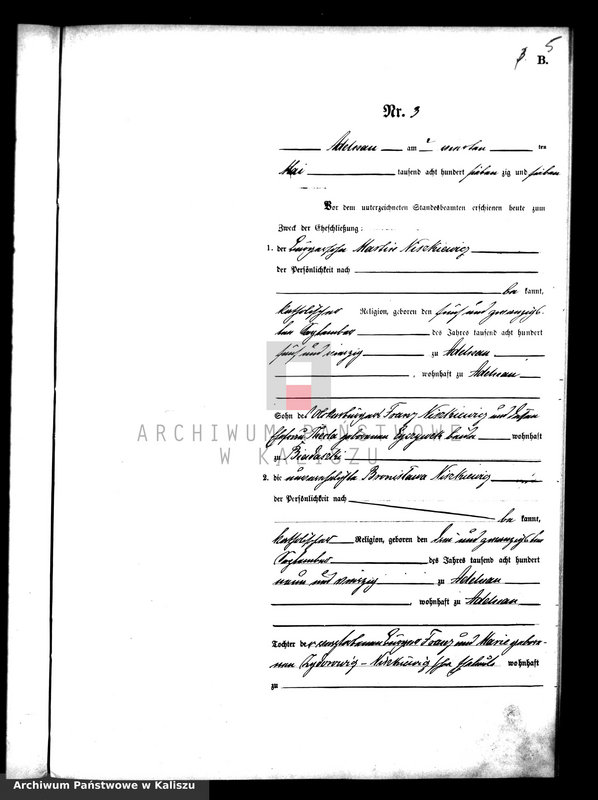 5
B.
Nr. 3
Adelnau am 2 ten
Mai tausend acht hundert sieben zig und sieben
Vor dem unterzeichneten Standesbeamten erschienen heute zum
Zweck der Eheschließung:
1. der Martin Niszkiewicz
der Persönlichkeit nach
be kannt,
katholischer Religion, geboren den fünf und zwanzigs-
ten September des Jahres tausend acht hundert
fünf und vierzig zu Adelnau
, wohnhaft zu Adelnau
Sohn des Franz Niszkiewicz und dessen
Ehefrau Thecla geborenen beide wohnhaft
zu Biadaszki
ARCHIWUM PAŃSTWOWE
W KALISZU
2. die unverehelichte Bronislawa Niszkiewicz
der Persönlichkeit nach
be kannt,
katholischer Religion, geboren den drei und zwanzigsten
September des Jahres tausend acht hundert
neun und vierzig zu Adelnau
, wohnhaft zu Adelnau
Tochter der verstorbenen Bürger Franz und Marie gebore-
nen Niszkiewicz Eheleute wohnhaft
zu
Archiwum Państwowe w Kaliszu